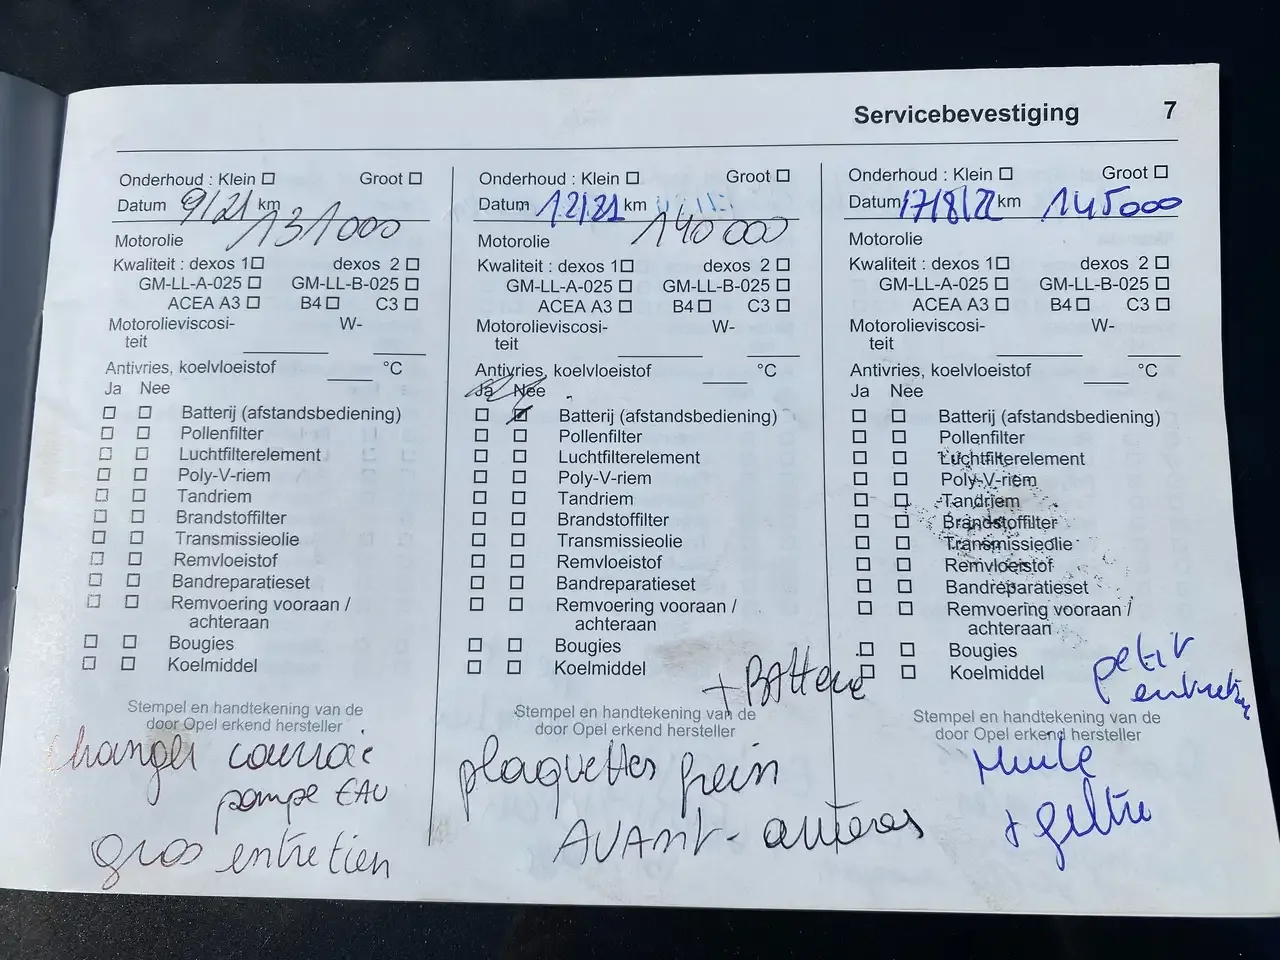 Servicebevestiging 7
Onderhoud : Klein Groot
Datum 9/21 km 131000
Motorolie
Kwaliteit : dexos 1 dexos 2
GM-LL-A-025 GM-LL-B-025
ACEA A3 B4 C3
Motorolieviscosi- W-
teit
Antivries, koelvloeistof °C
Ja Nee
Batterij (afstandsbediening)
Pollenfilter
Luchtfilterelement
Poly-V-riem
Tandriem
Brandstoffilter
Transmissieolie
Remvloeistof
Bandreparatieset
Remvoering vooraan /
achteraan
Bougies
Koelmiddel
Stempel en handtekening van de
door Opel erkend hersteller
changer courroie
pompe EAU
gros entretien
Onderhoud : Klein Groot
Datum 12/21 km 140000
Motorolie
Kwaliteit : dexos 1 dexos 2
GM-LL-A-025 GM-LL-B-025
ACEA A3 B4 C3
Motorolieviscosi- W-
teit
Antivries, koelvloeistof °C
Ja Nee
Batterij (afstandsbediening)
Pollenfilter
Luchtfilterelement
Poly-V-riem
Tandriem
Brandstoffilter
Transmissieolie
Remvloeistof
Bandreparatieset
Remvoering vooraan /
achteraan
Bougies
Koelmiddel
+ BAtterie
Stempel en handtekening van de
door Opel erkend hersteller
plaquettes frein
AVANT - arrières
Onderhoud : Klein Groot
Datum 17/8/22 km 145000
Motorolie
Kwaliteit : dexos 1 dexos 2
GM-LL-A-025 GM-LL-B-025
ACEA A3 B4 C3
Motorolieviscosi- W-
teit
Antivries, koelvloeistof °C
Ja Nee
Batterij (afstandsbediening)
Pollenfilter
Luchtfilterelement
Poly-V-riem
Tandriem
Brandstoffilter
Transmissieolie
Remvloeistof
Bandreparatieset
Remvoering vooraan /
achteraan
Bougies
Koelmiddel
petit
entretien
Stempel en handtekening van de
door Opel erkend hersteller
Huile
+ filtre